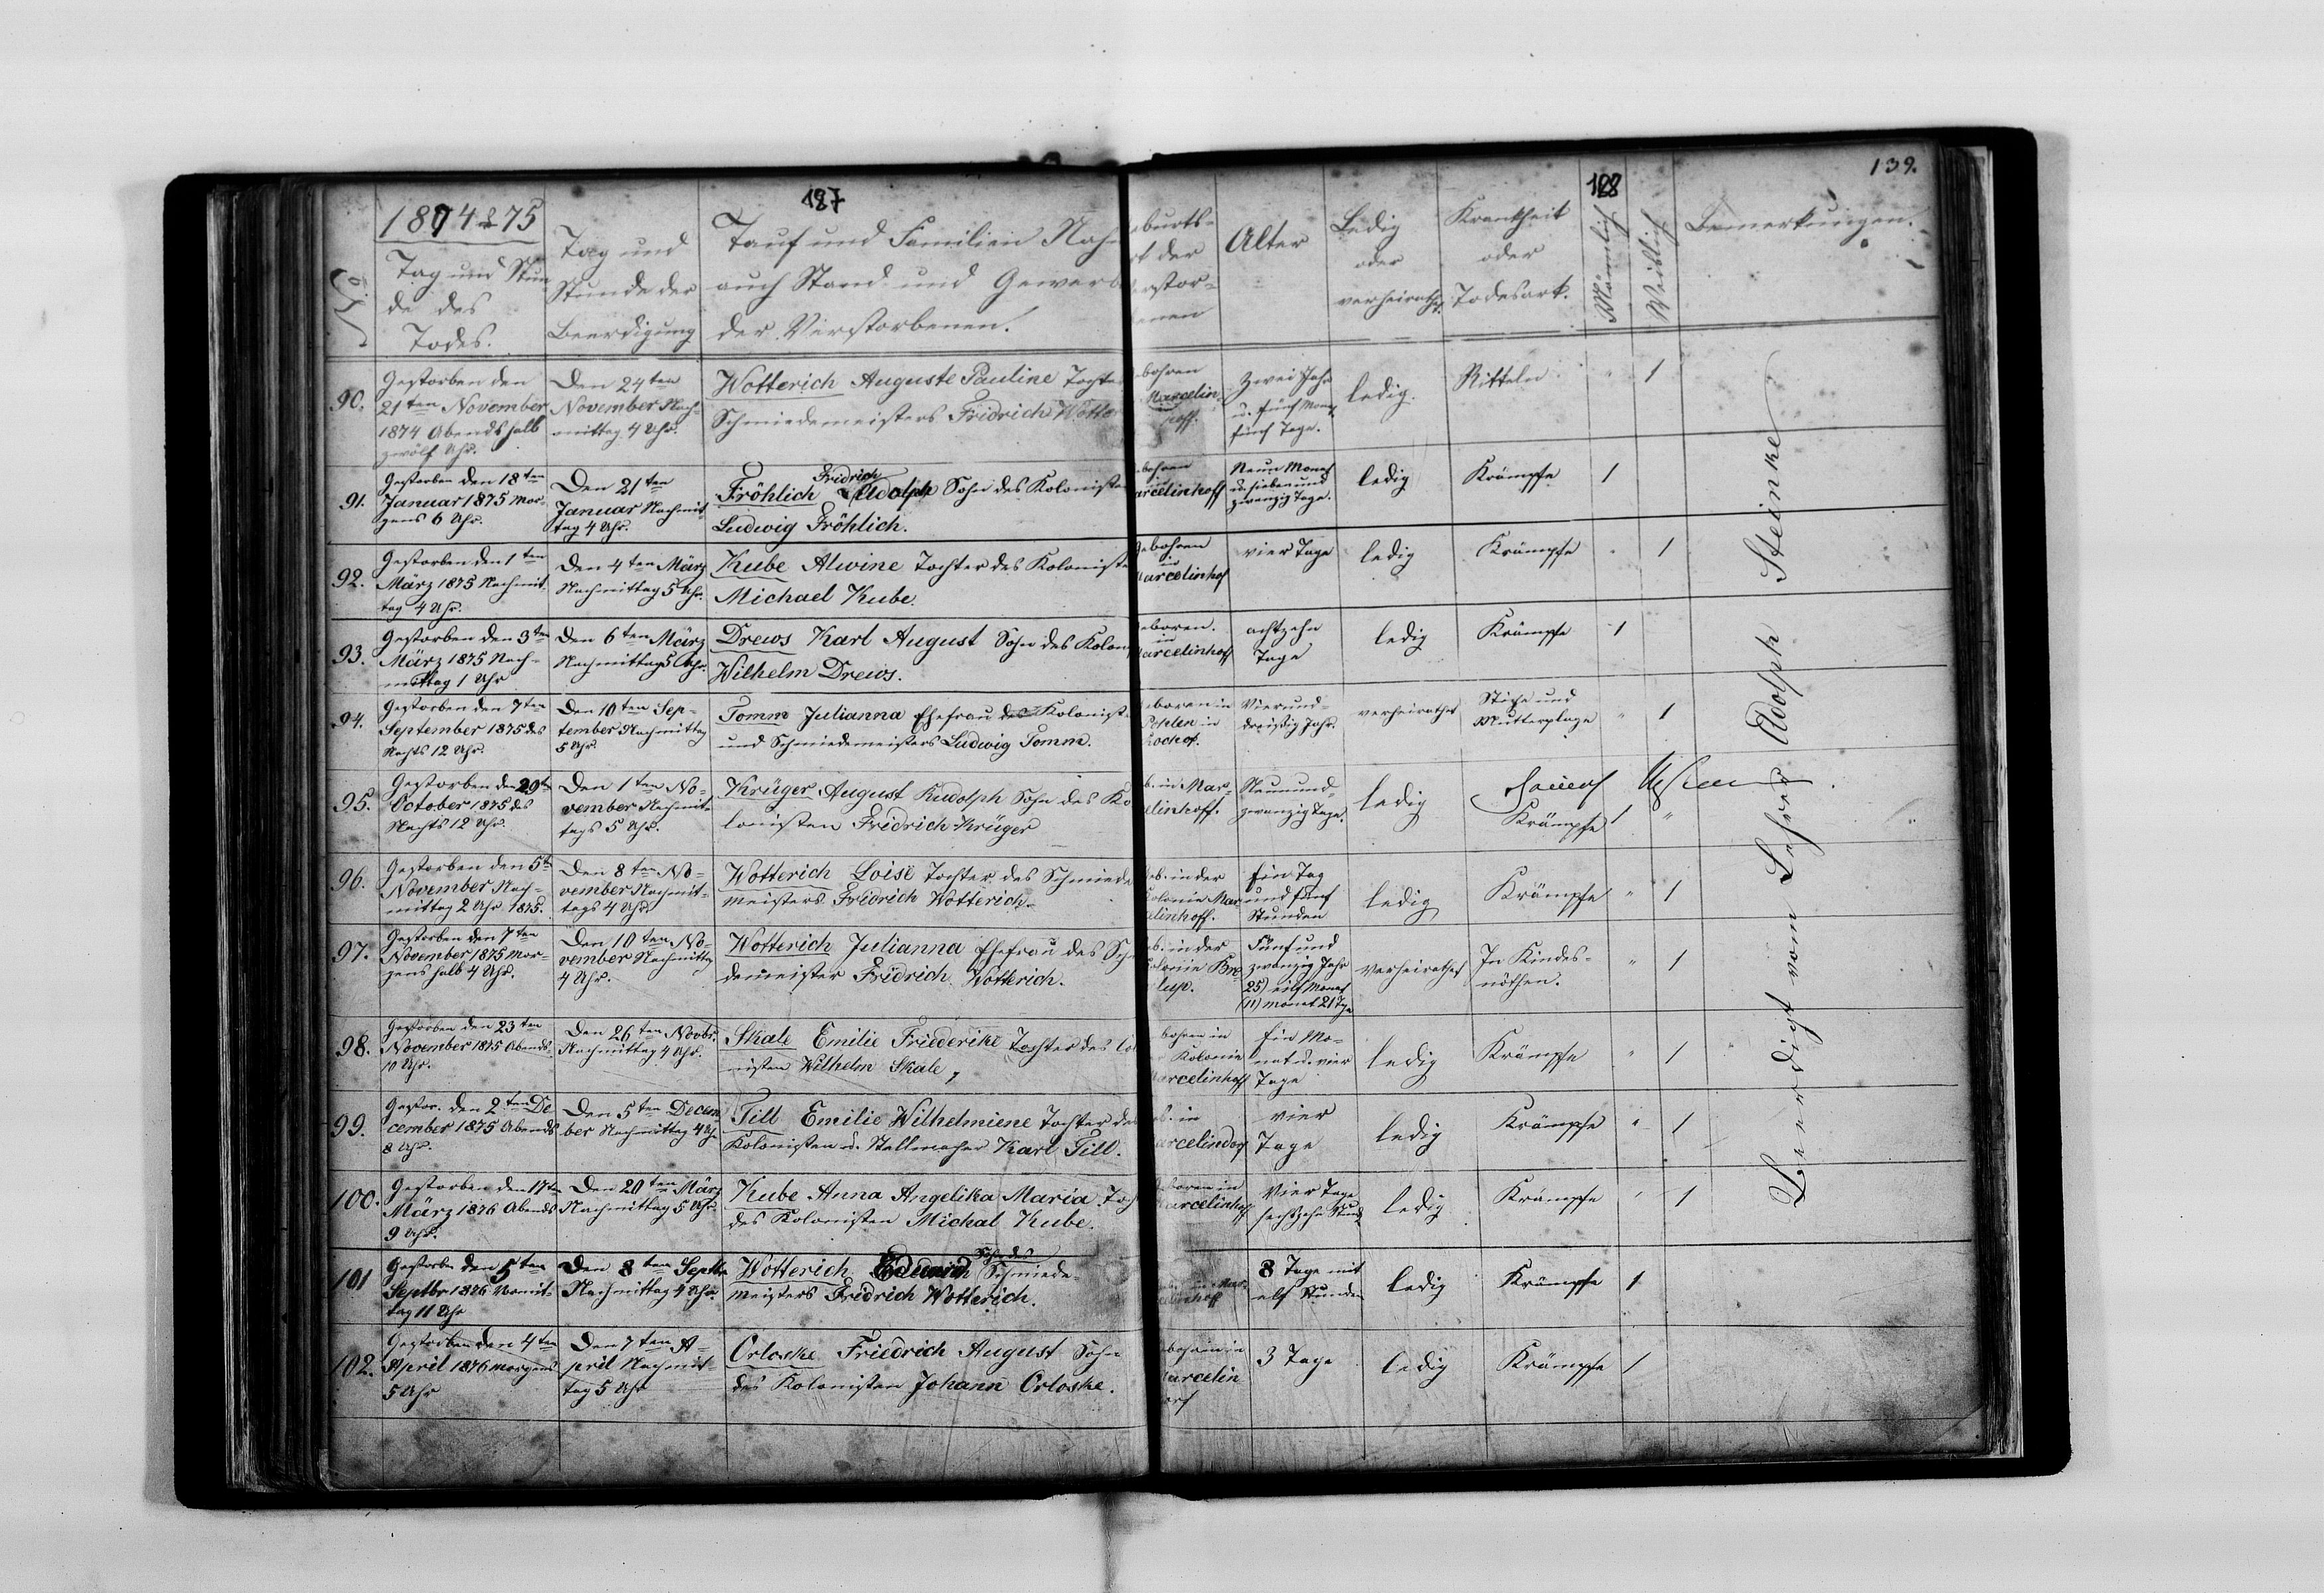 187
188
139.
1874 & 75
Tag und Stun
de des
Todes.
Tag und
Stunde der
Beerdigung
Tauf und Familien Nah
auch Stand und Gewerb
der Verstorbenen.
burts-
der
rstor-
enen
Alter
Ledig
oder
verheirathet.
Krankheit
oder
Todesart.
Männlich
Weiblich
Bemerkungen.
90.
Gestorben den
21ten November
1874 Abends halb
zwölf Uhr.
Den 24ten
November Nach-
mittag 4 Uhr.
Wotterich Auguste Pauline Tochter
Schmiedemeisters Fridrich Wotter
bohren
Marcelin-
hoff.
Zwei Jahr
u. fünf Mona
fünf Tage.
ledig.
1
91.
Gestorben den 18ten
Januar 1875 Mor-
gens 6 Uhr.
Den 21ten
Januar Nachmit-
tag 4 Uhr.
Fridrich
Fröhlich Adolph Sohn des Koloniste
Ludwig Fröhlich.
bohren
in
arcelinhoff
Neun Monat
u. sieben und
zwanzig Tage.
ledig
Krämpfe
1
92.
Gestorben den 1ten
März 1875 Nachmit
tag 4 Uhr.
Den 4ten März
Nachmittag 5 Uhr.
Kube Alwine Tochter des Koloniste
Michael Kube.
Gebohren
in
arcelinhof
vier Tage
ledig
Krämpfe
1
93.
Gestorben den 3ten
März 1875 Nach-
mittag 1 Uhr
Den 6ten März
Nachmittag 5 Uhr.
Drews Karl August Sohn des Kolon
Wilhelm Drews.
eboren.
in
arcelinhoff
achtzehn
Tage
ledig
Krämpfe
1
94.
Gestorben den 7ten
September 1875 des
Nachts 12 Uhr.
Den 10ten Sep-
tember Nachmittag
5 Uhr.
Tomm Julianna Ehefrau des Kolonist
und Schmiedemeisters Ludwig Tomm.
eboren in
Pohlen in
Vierund-
dreißig Jahr.
verheirathet
Stiche und
Mutterplage
1
95.
Gestorben den 29t
October 1875 des
Nachts 12 Uhr.
Den 1ten No-
vember Nachmit-
tags 5 Uhr.
Krüger August Rudolph Sohn des Ko
lonisten Fridrich Krüger
b. in Mar-
elinhoff.
Neunund-
zwanzig Tage.
ledig
Krämpfe
1
96.
Gestorben den 5t
November Nach-
mittag 2 Uhr 1875.
Den 8ten No-
vember Nachmit-
tags 4 Uhr.
Wotterich Loise Tochter des Schmiede
meisters Fridrich Wotterich.
eb. in der
Kolonie Mar
elinhoff.
Ein Tag
und fünf
Stunden
ledig
Krämpfe
1
97.
Gestorben den 7ten
November 1875 Mor-
gens halb 4 Uhr.
Den 10ten No-
vember Nachmittag
4 Uhr.
Wotterich Julianna Ehefrau des Sch
demeister Fridrich Wotterich.
b. in der
olonie
Fünf und
zwanzig Jahr
25) eilf Monat
(11) monat 21 Tge
verheirathet
In Kindes-
nöthen.
1
98.
Gestorben den 23ten
November 1875 Abends
10 Uhr.
Den 26ten Novbr.
Nachmittag 4 Uhr.
Skale Emilie Friederike Tochter des Col
nisten Wilhelm Skale,
bohren in
Kolonie
arcelinhoff
Ein Mo-
nat u. vier
Tage
ledig
Krämpfe
1
99.
Gestor. den 2ten De
cember 1875 Abends
8 Uhr.
Den 5ten Decem
ber Nachmittag 4 Uhr
Till Emilie Wilhelmiene Tochter des
Kolonisten u. Stellmacher Karl Till.
b. in
arcelindorf
vier
Tage
ledig
Krämpfe
1
100.
Gestorben den 17ten
März 1876 Abends
9 Uhr.
Den 20ten März
Nachmittag 5 Uhr.
Kube Anna Angelika Maria Toch
des Kolonisten Michal Kube.
boren in
arcelinhoff
Vier Tage
sechszehn Stund
ledig
Krämpfe
1
101
Gestorben den 5ten
Septbr 1876 Vormit-
tag 11 Uhr
Den 8ten Septbr
Nachmittag 4 Uhr.
Sohn des
Wotterich Eduard Schmiede-
meisters Fridrich Wotterich.
in Mar-
elinhoff
8 Tage mit
elf Stunden
ledig
Krämpfe
1
102.
Gestorben den 4ten
April 1876 Morgens
5 Uhr
Den 7ten A-
pril Nachmit-
tag 5 Uhr
Orloske Friedrich August Sohn
des Kolonisten Johann Orloske.
bohren in
arcelin
orf
3 Tage
ledig
Krämpfe
1
Beerdigt vom Lehrer Adolph Steinke